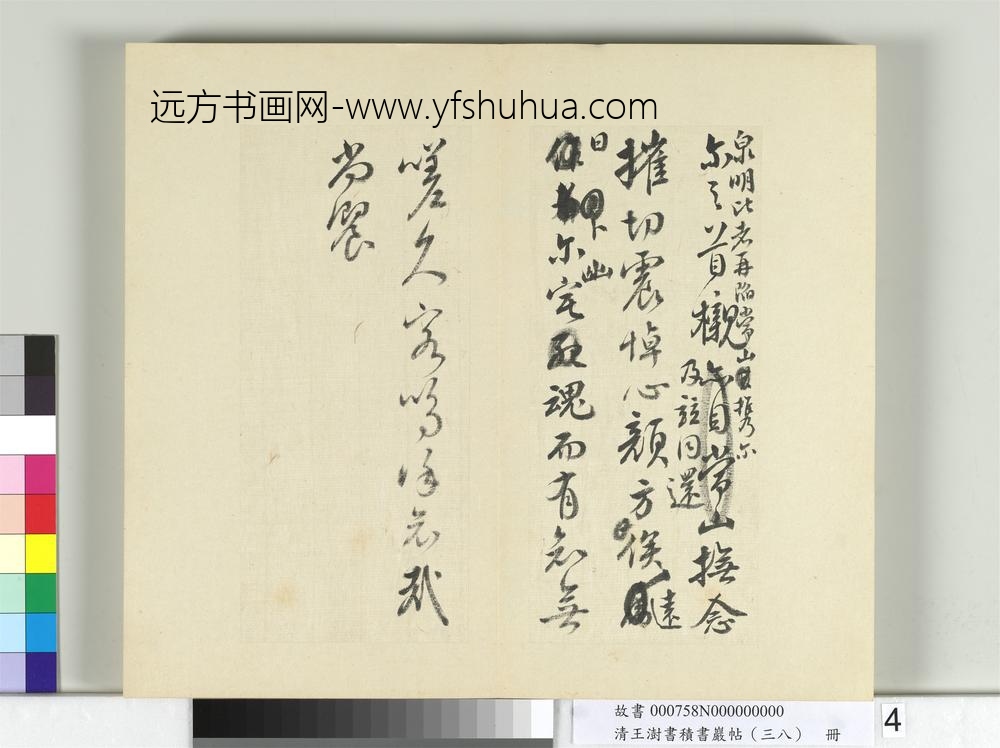 远方书画网-www.yfshuhua.com
泉明比者再陷常山携尔
尔之首櫬亦自常山撫念
及并同還
摧切震悼心顏方俟遠
日卜
尔幽宅魂而有知無
嗟久客嗚呼哀哉
尚饗
故書 000758N000000000
清王澍書積書巖帖（三八） 冊
4